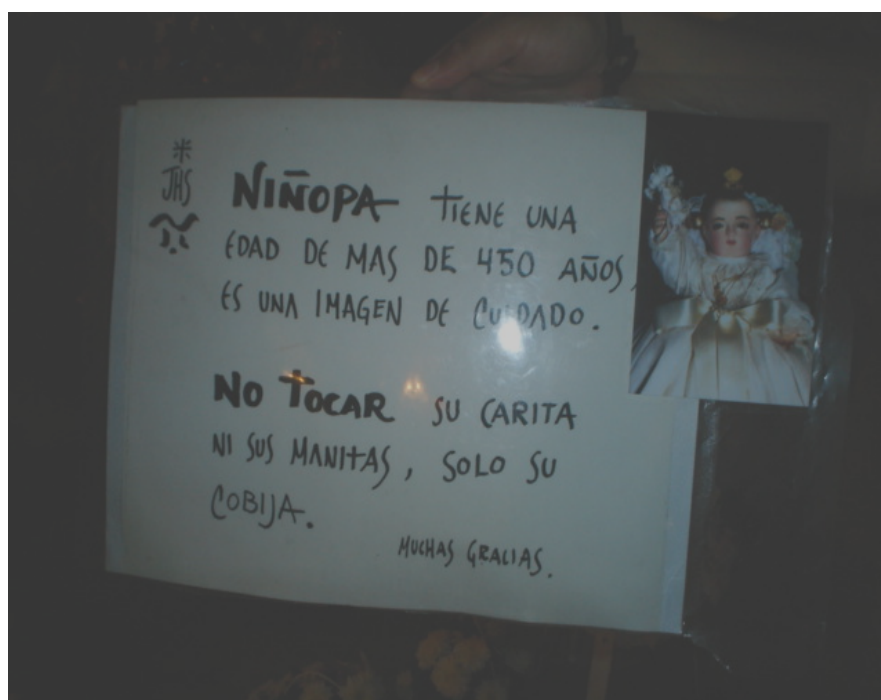 JHS
NIÑOPA TIENE UNA
EDAD DE MAS DE 450 AÑOS,
ES UNA IMAGEN DE CUIDADO.
NO TOCAR SU CARITA
NI SUS MANITAS, SOLO SU
COBIJA.
MUCHAS GRACIAS.